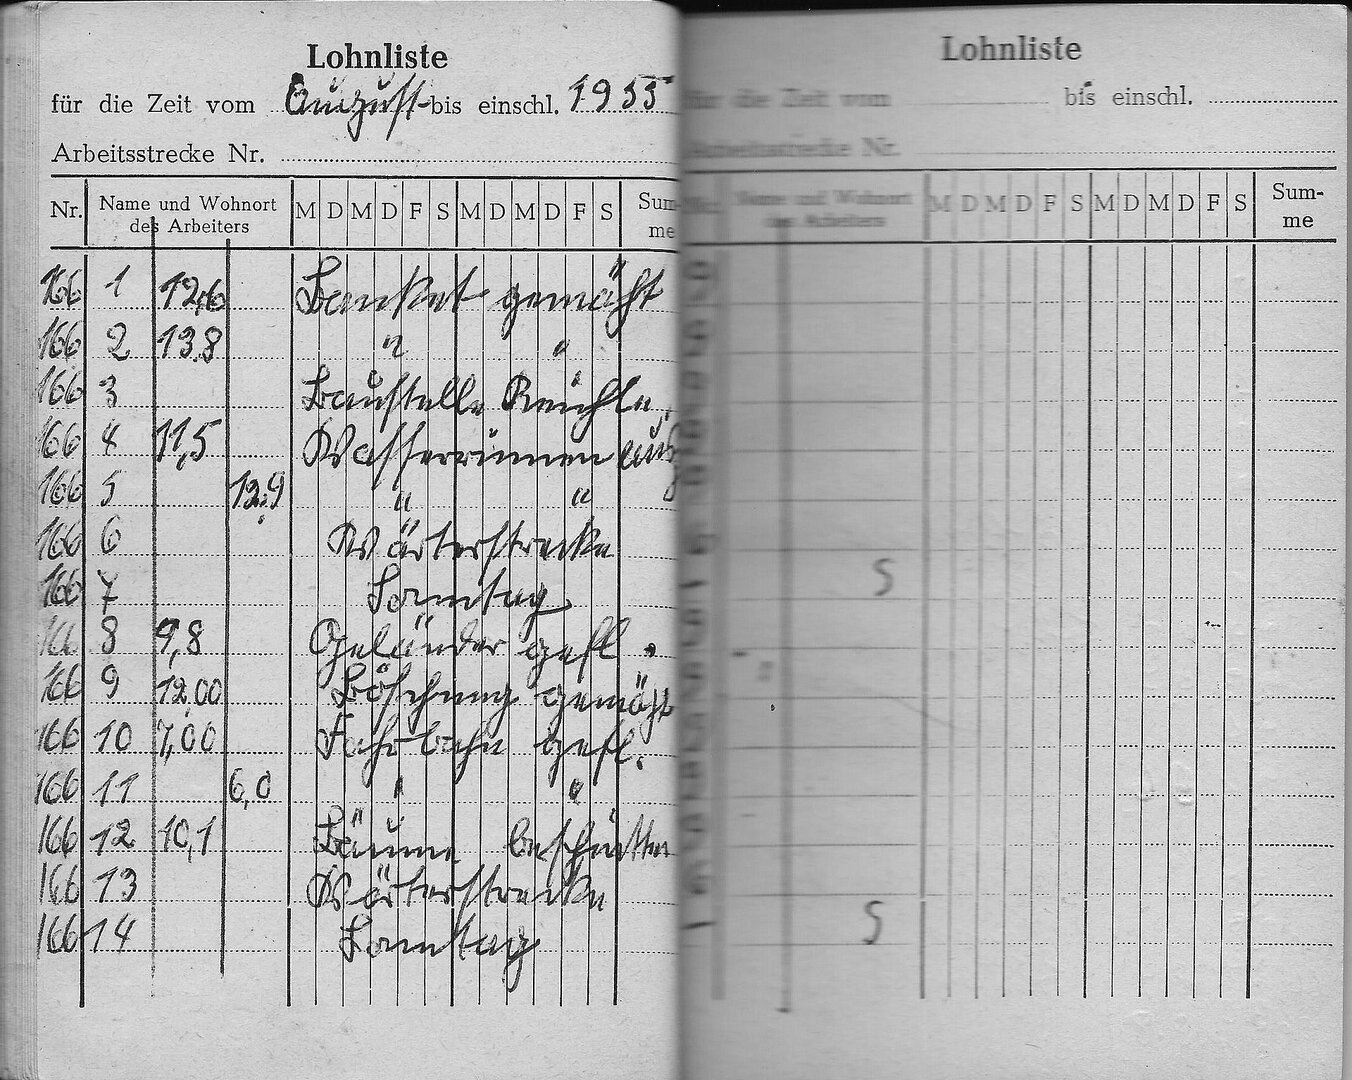 Lohnliste
für die Zeit vom August bis einschl. 1955
Arbeitsstrecke Nr.
Nr. Name und Wohnort des Arbeiters M D M D F S M D M D F S Summe
166 1 12,6 Banket gemäht
166 2 13,8 " "
166 3 Baustelle Reichle
166 4 11,5 Wasserrinnen ausg
166 5 12,9 " "
166 6 Wärterstrecke
166 7 Sonntag
166 8 9,8 Geländer gefl.
166 9 12,00 Böschung gemäht
166 10 7,00 Fahrbahn gefl.
166 11 6,0 " "
166 12 10,1 Bäume beschnitten
166 13 Wärterstrecke
166 14 Sonntag
Lohnliste
für die Zeit vom bis einschl.
Arbeitsstrecke Nr.
Name und Wohnort des Arbeiters M D M D F S M D M D F S Summe
S
S